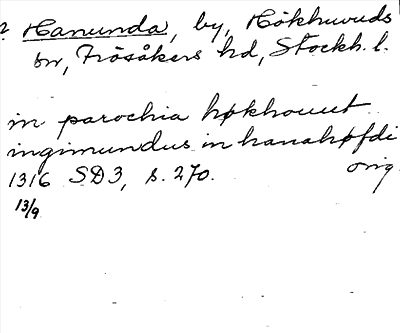 Hanunda, by, Hökhuvuds
sn, Frösåkers hd, Stockh. l.
in parochia høkhouut
ingimundus in hanahøfdi
1316 SD3, s. 270. orig
13/9